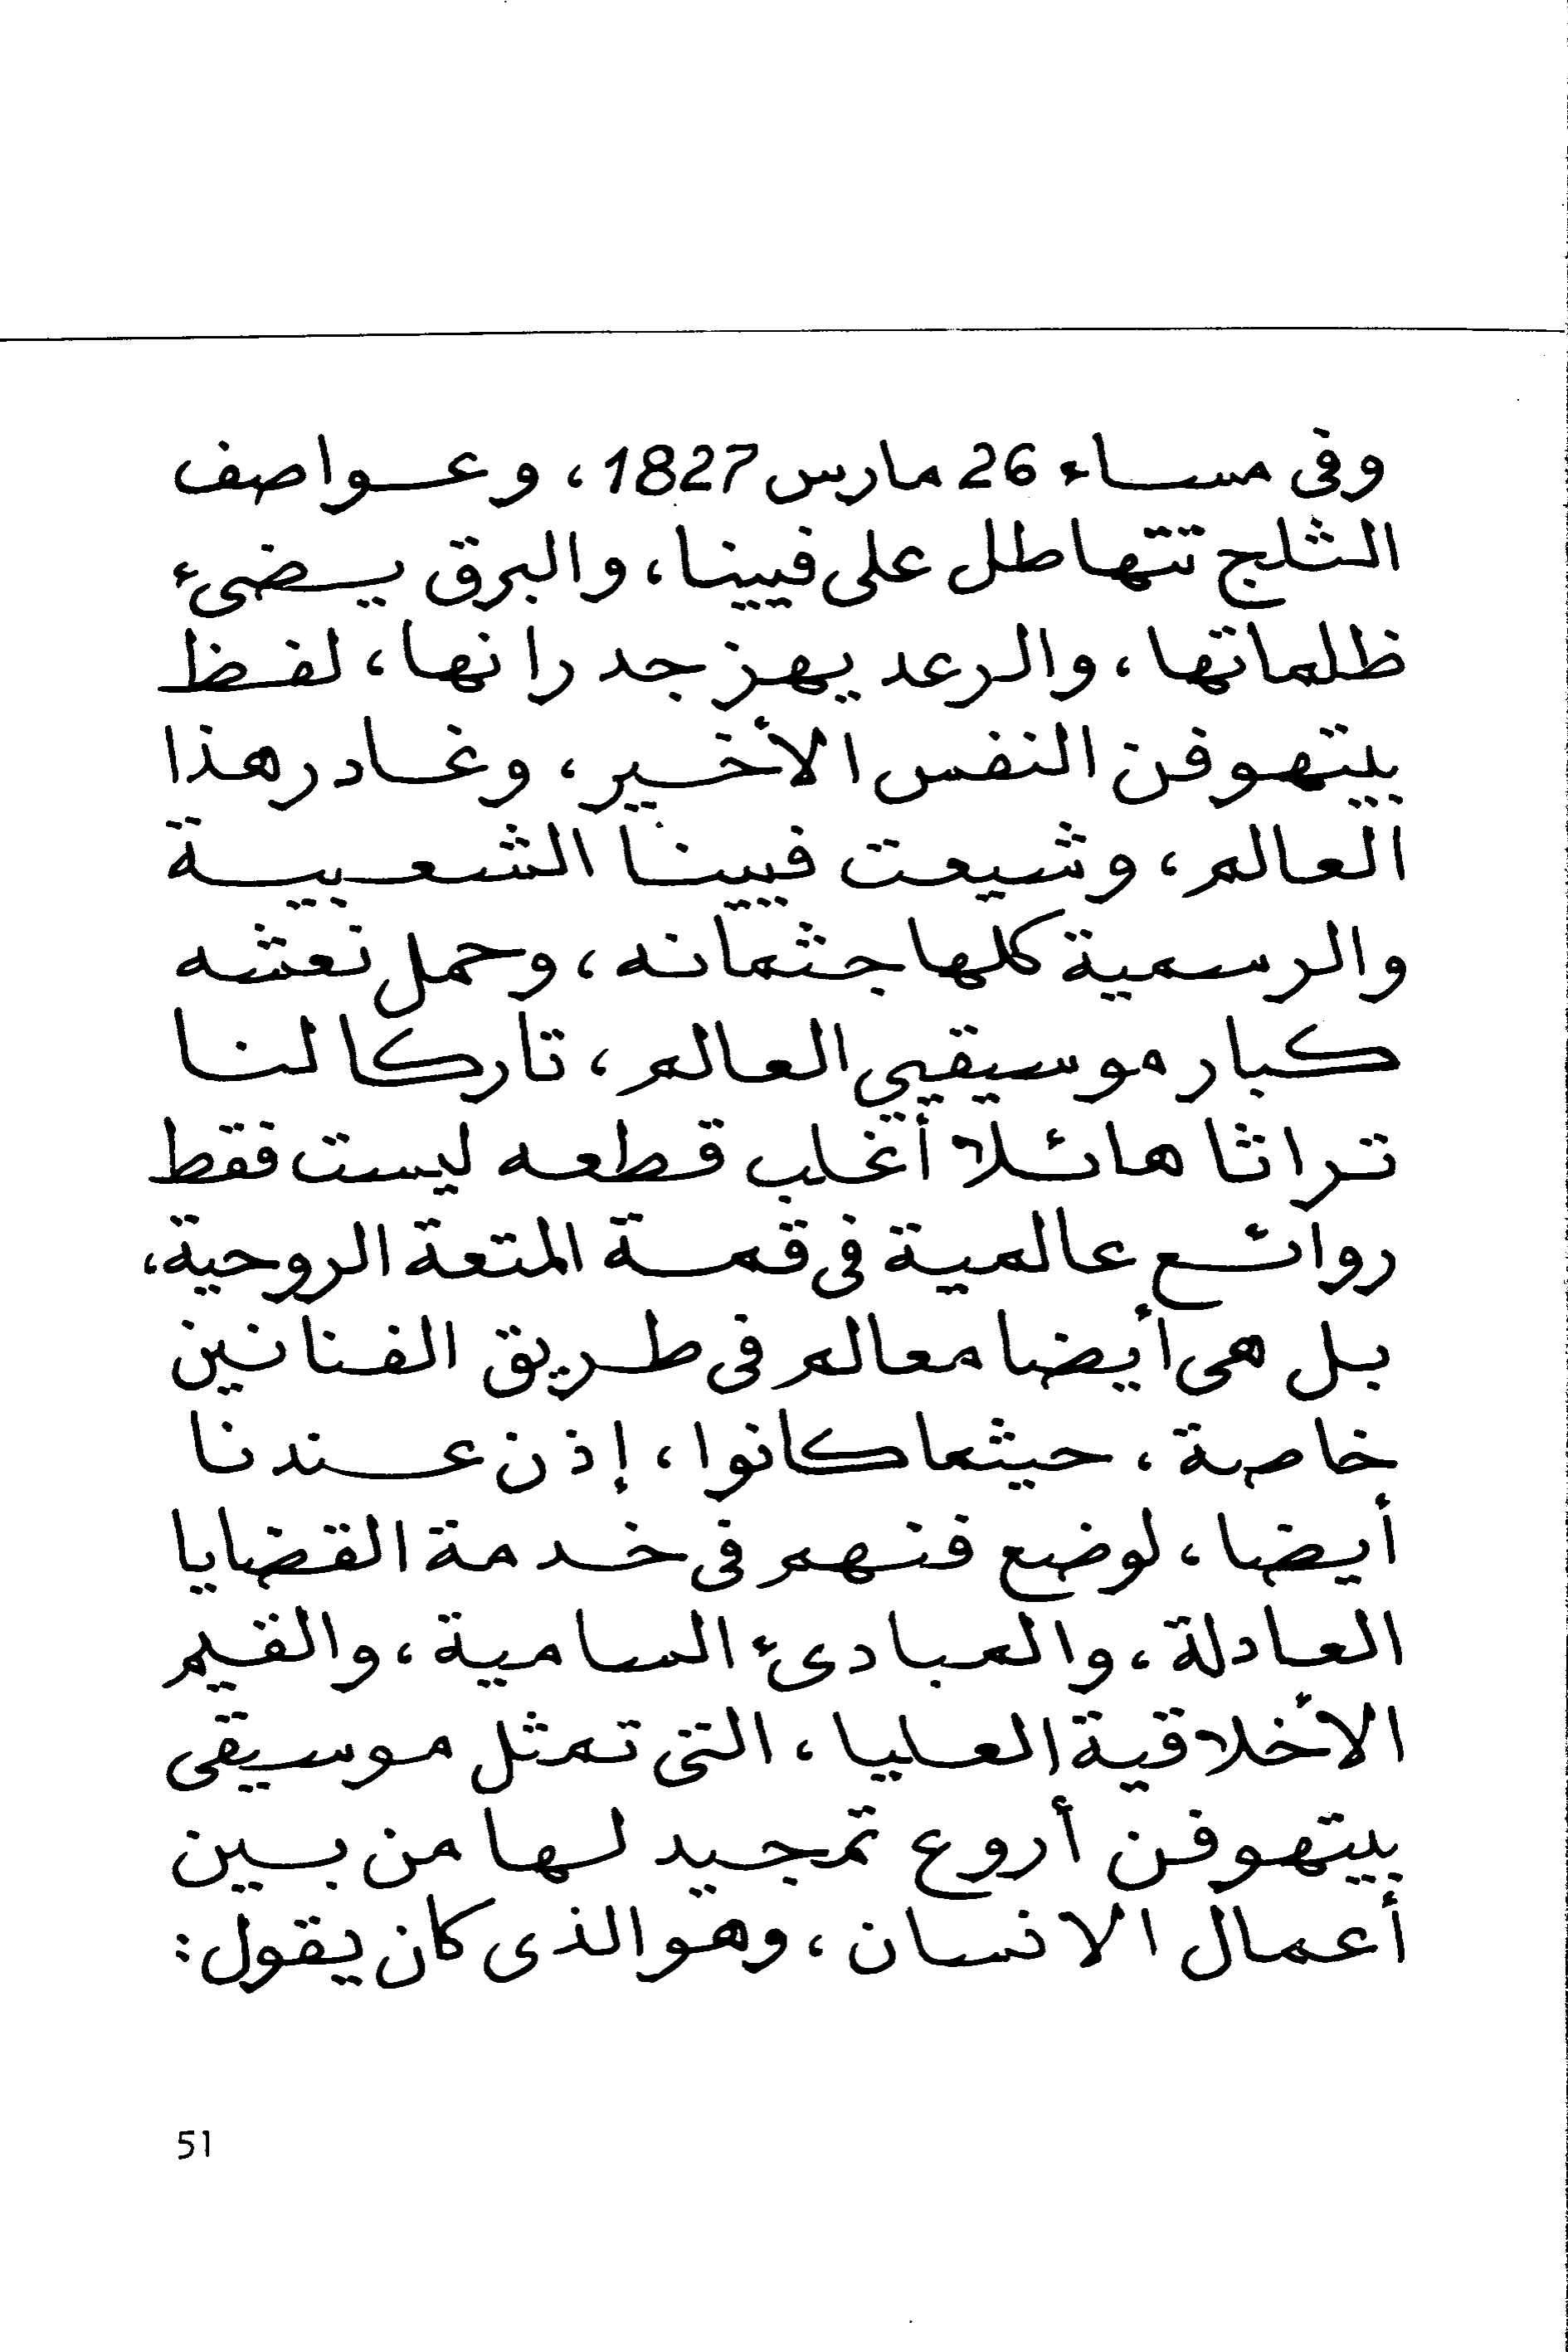 وفى مساء 26 مارس 1827، وعواصف
الثلج تتهاطل على فيينا، والبرق يضىء
ظلماتها، والرعد يهز جدرانها، لفظ
بيتهوفن النفس الأخير، وغادر هذا
العالم، وشيعت فيينا الشعبية
والرسمية كلها جثمانه، وحمل نعشه
كبار موسيقيي العالم، تاركا لنا
تراثا هائلا أغلب قطعه ليست فقط
روائع عالمية فى قمة المتعة الروحية،
بل هى أيضا معالم فى طريق الفنانين
خاصة، حيثما كانوا، إذن عندنا
أيضا، لوضع فنهم فى خدمة القضايا
العادلة، والمبادىء السامية، والقيم
الأخلاقية العليا، التى تمثل موسيقى
بيتهوفن أروع تمجيد لها من بين
أعمال الانسان، وهو الذى كان يقول:
51